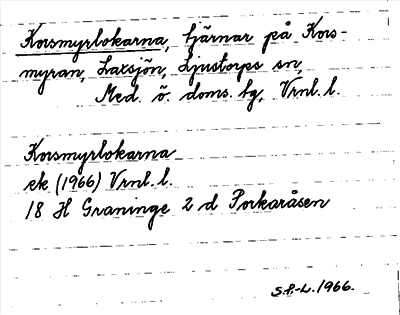 Korsmyrlokarna, tjärnar på Kors-
myran, Laxsjön, Ljustorps sn,
Med. ö. doms. tg, Vrnl. l.
Korsmyrlokarna
ek (1966) Vrnl. l.
18 H Graninge 2 d Porkaråsen
S.P.-L. 1966.